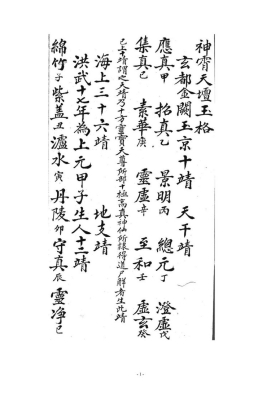 神霄天壇玉格
玄都金闕玉京十靖 天干靖
應真甲 招真乙 景明丙 總元丁 澄虛戊
集真己 素華庚 靈虛辛 至和壬 虛玄癸
已上靖謂之天靖乃十方靈寶天尊所部十極高真神仙所隸得道尸解者生此靖
海上三十六靖 地支靖
洪武十七年為上元甲子生人十二靖
綿竹子 紫盖丑 瀘水寅 丹陵卯 守真辰 靈净巳
-1-